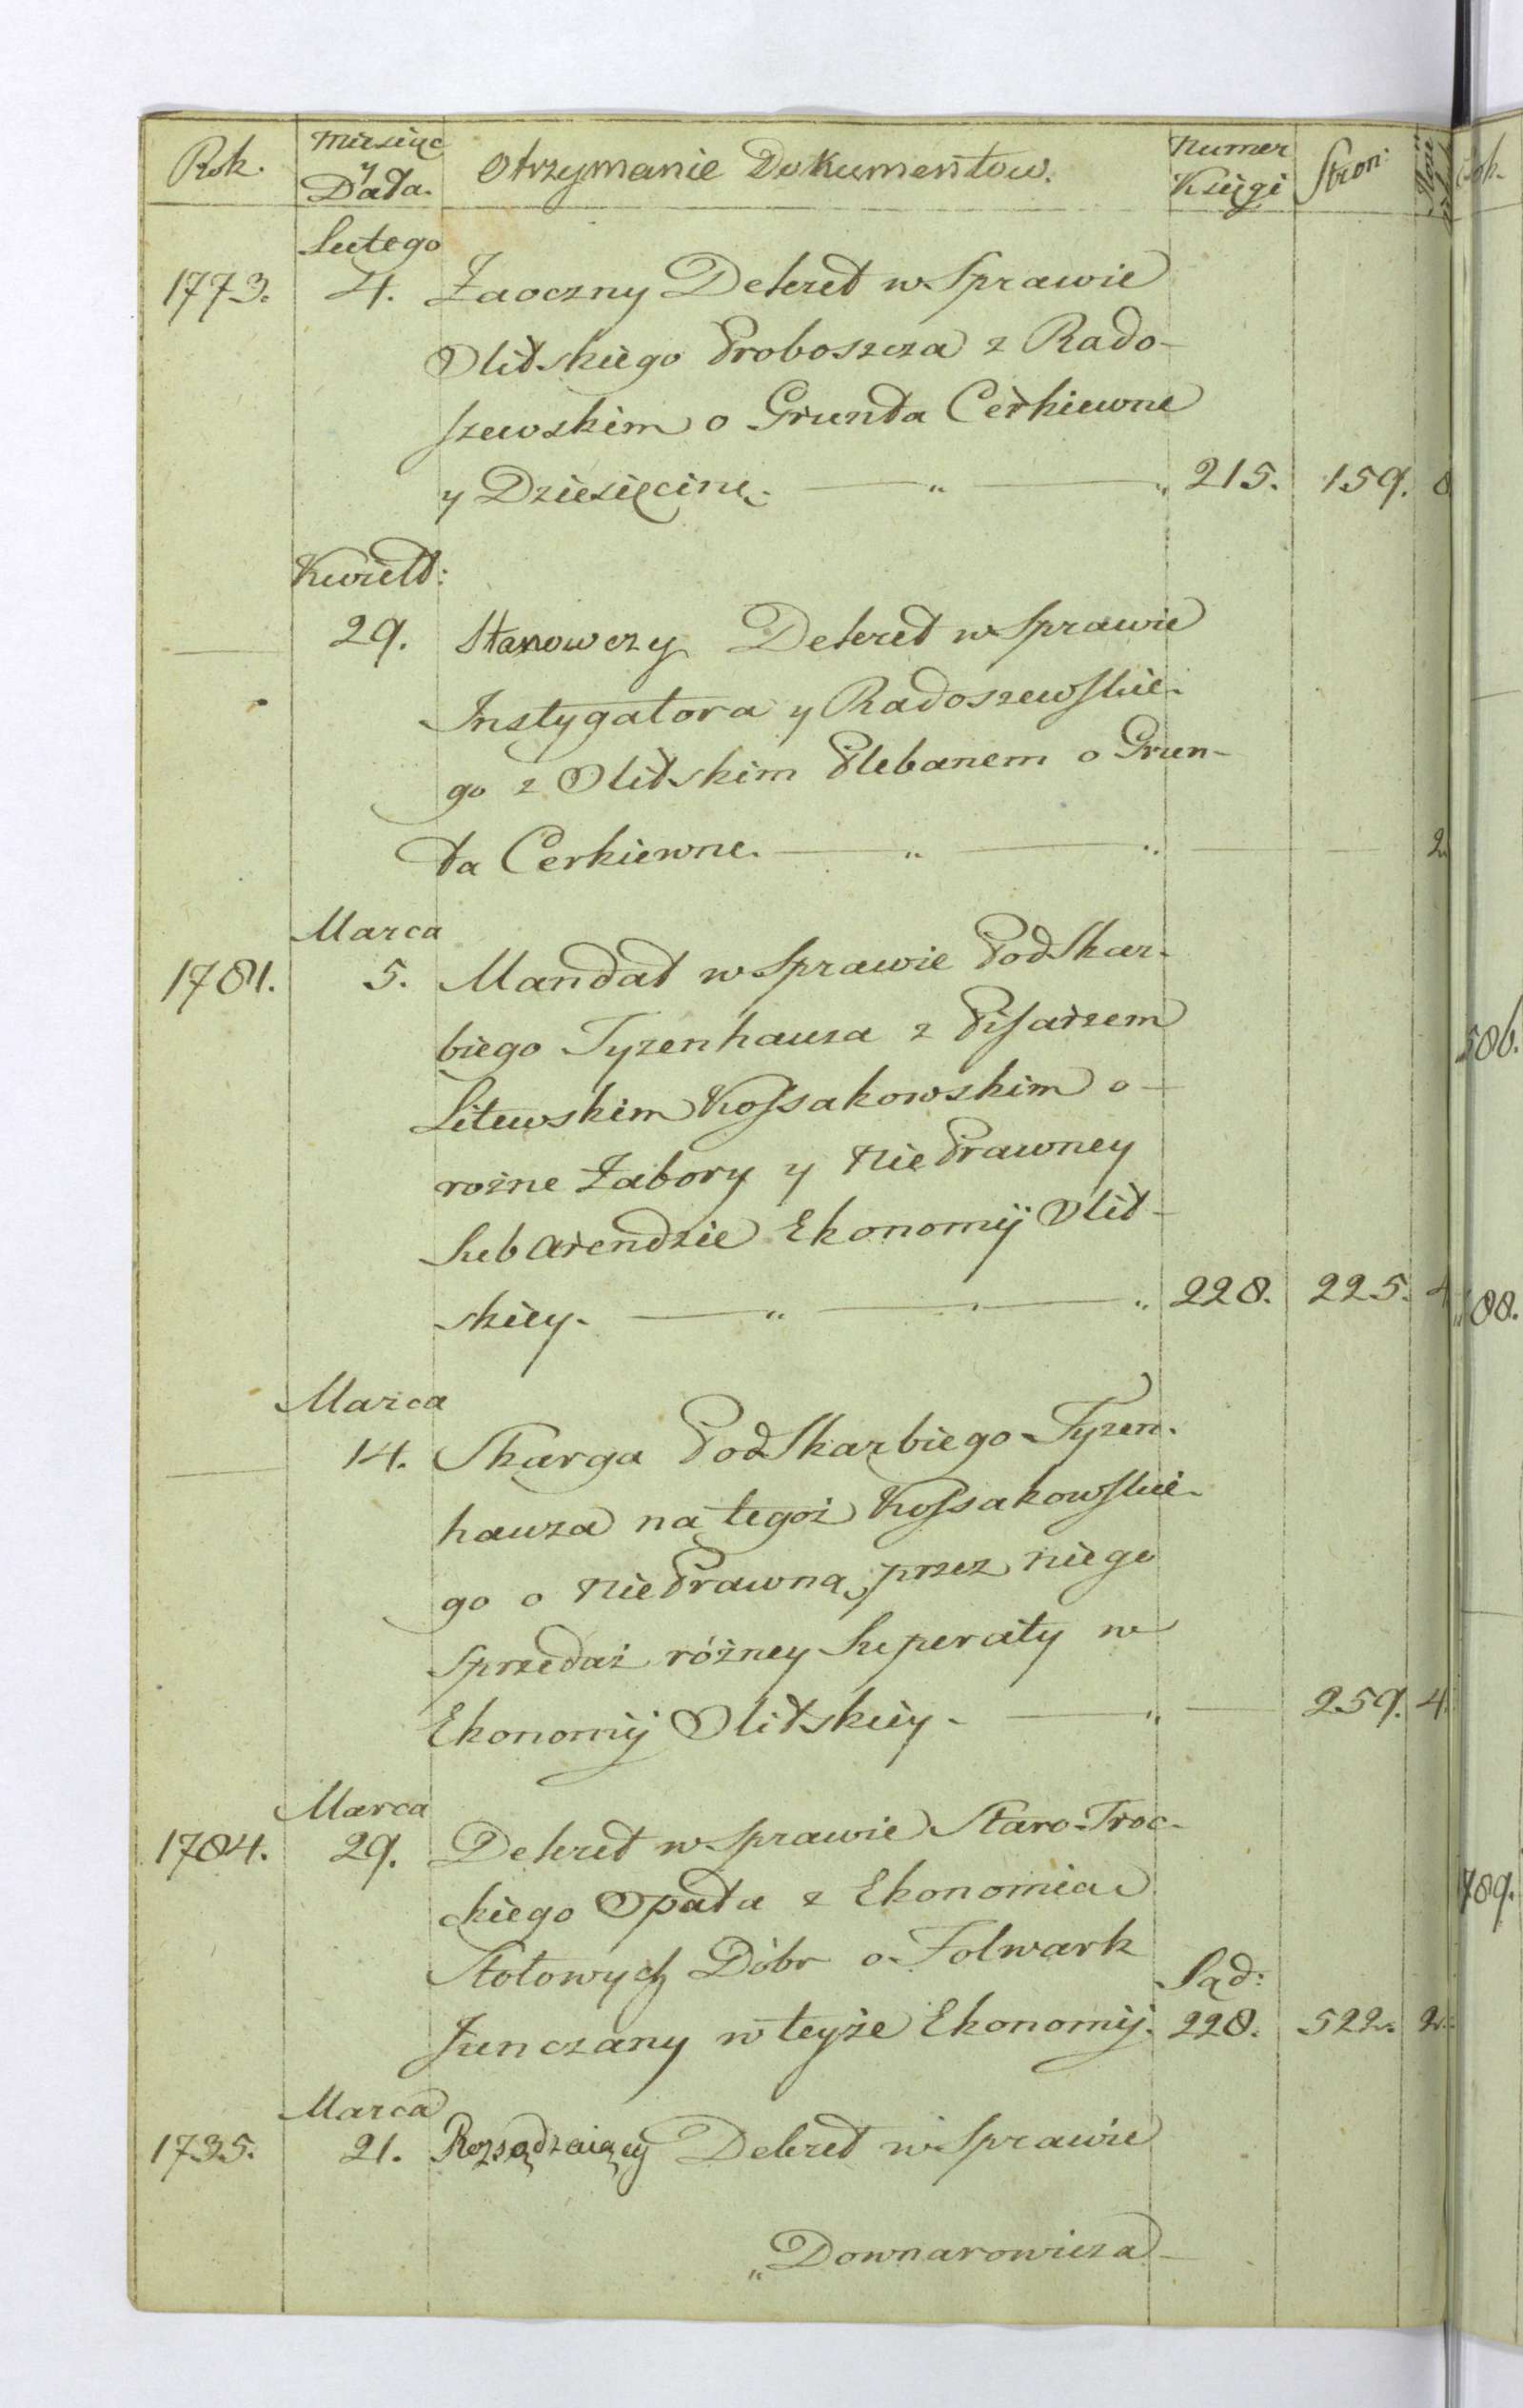 Rok. Miesiąc y Data. Otrzymanie Dokumentow. Numer Księgi Stron:
Lutego
1773. 4. Zaoczny Dekret w Sprawie
Olitskiego Proboszcza z Rado-
szewskim o Grunta Cerkiewne
y Dziesięcinę. 215. 159.
Kwiet:
29. Stanowczy Dekret w Sprawie
Instygatora y Radoszewskie-
go z Olitskim Plebanem o Grun-
ta Cerkiewne. 2.
Marca
1781. 5. Mandat w Sprawie PodSkar-
biego Tyzenhauza z Pisarzem
Litewskim Kossakowskim o
rożne Zabory y NiePrawney
SubArendzie Ekonomij Olit-
skiey. 228. 225. 4
Marca
14. Skarga PodSkarbiego Tyzen-
hauza na tegoż Kossakowskie-
go o NiePrawną przez niego
Sprzedaż różney Superaty w
Ekonomij Olitskiey. 259. 4.
Marca
1784. 29. Dekret w Sprawie Staro-Troc-
kiego Opata z Ekonomia
Stołowych Dóbr o Folwark
Sąd:
Junczany w teyże Ekonomij. 228. 522. 2.
Marca
1735. 21. Rozsądzaiący Dekret w Sprawie
„Downarowicza
506.
88.
789.